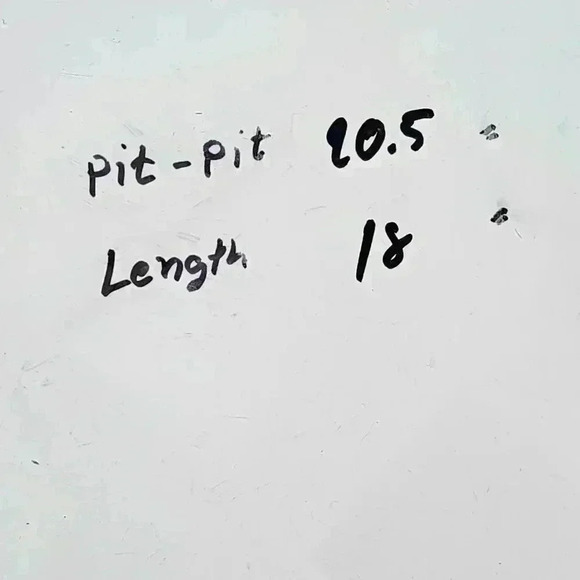 Pit-Pit 20.5 "
Length 18 "